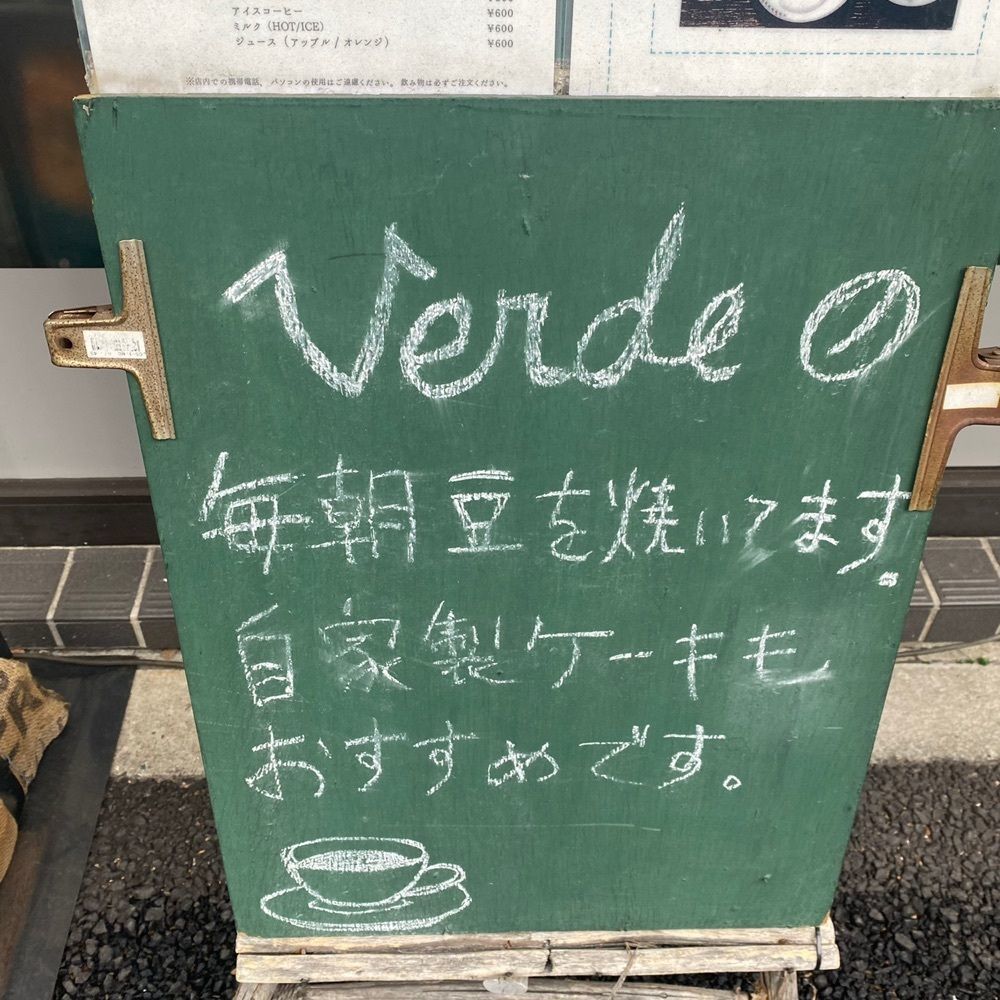 アイスコーヒー ¥600
ミルク（HOT/ICE） ¥600
ジュース（アップル / オレンジ） ¥600
※店内での携帯電話、パソコンの使用はご遠慮ください。飲み物は必ずご注文ください。
Verde
毎朝豆を焼いてます。
自家製ケーキも
おすすめです。